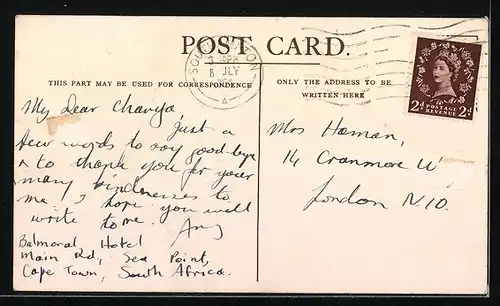 POST CARD.
THIS PART MAY BE USED FOR CORRESPONDENCE
ONLY THE ADDRESS TO BE
WRITTEN HERE
8 JLY
A
2d POSTAGE 2d
REVENUE
My dear
Just a
few words to say good-bye
& to thank you for your
many kindnesses to
me. I hope you will
write to me.
Amy
Balmoral Hotel
Main Rd, Sea Point,
Cape Town, South Africa.
Mrs Haman,
14 Cranmore W
London N10.